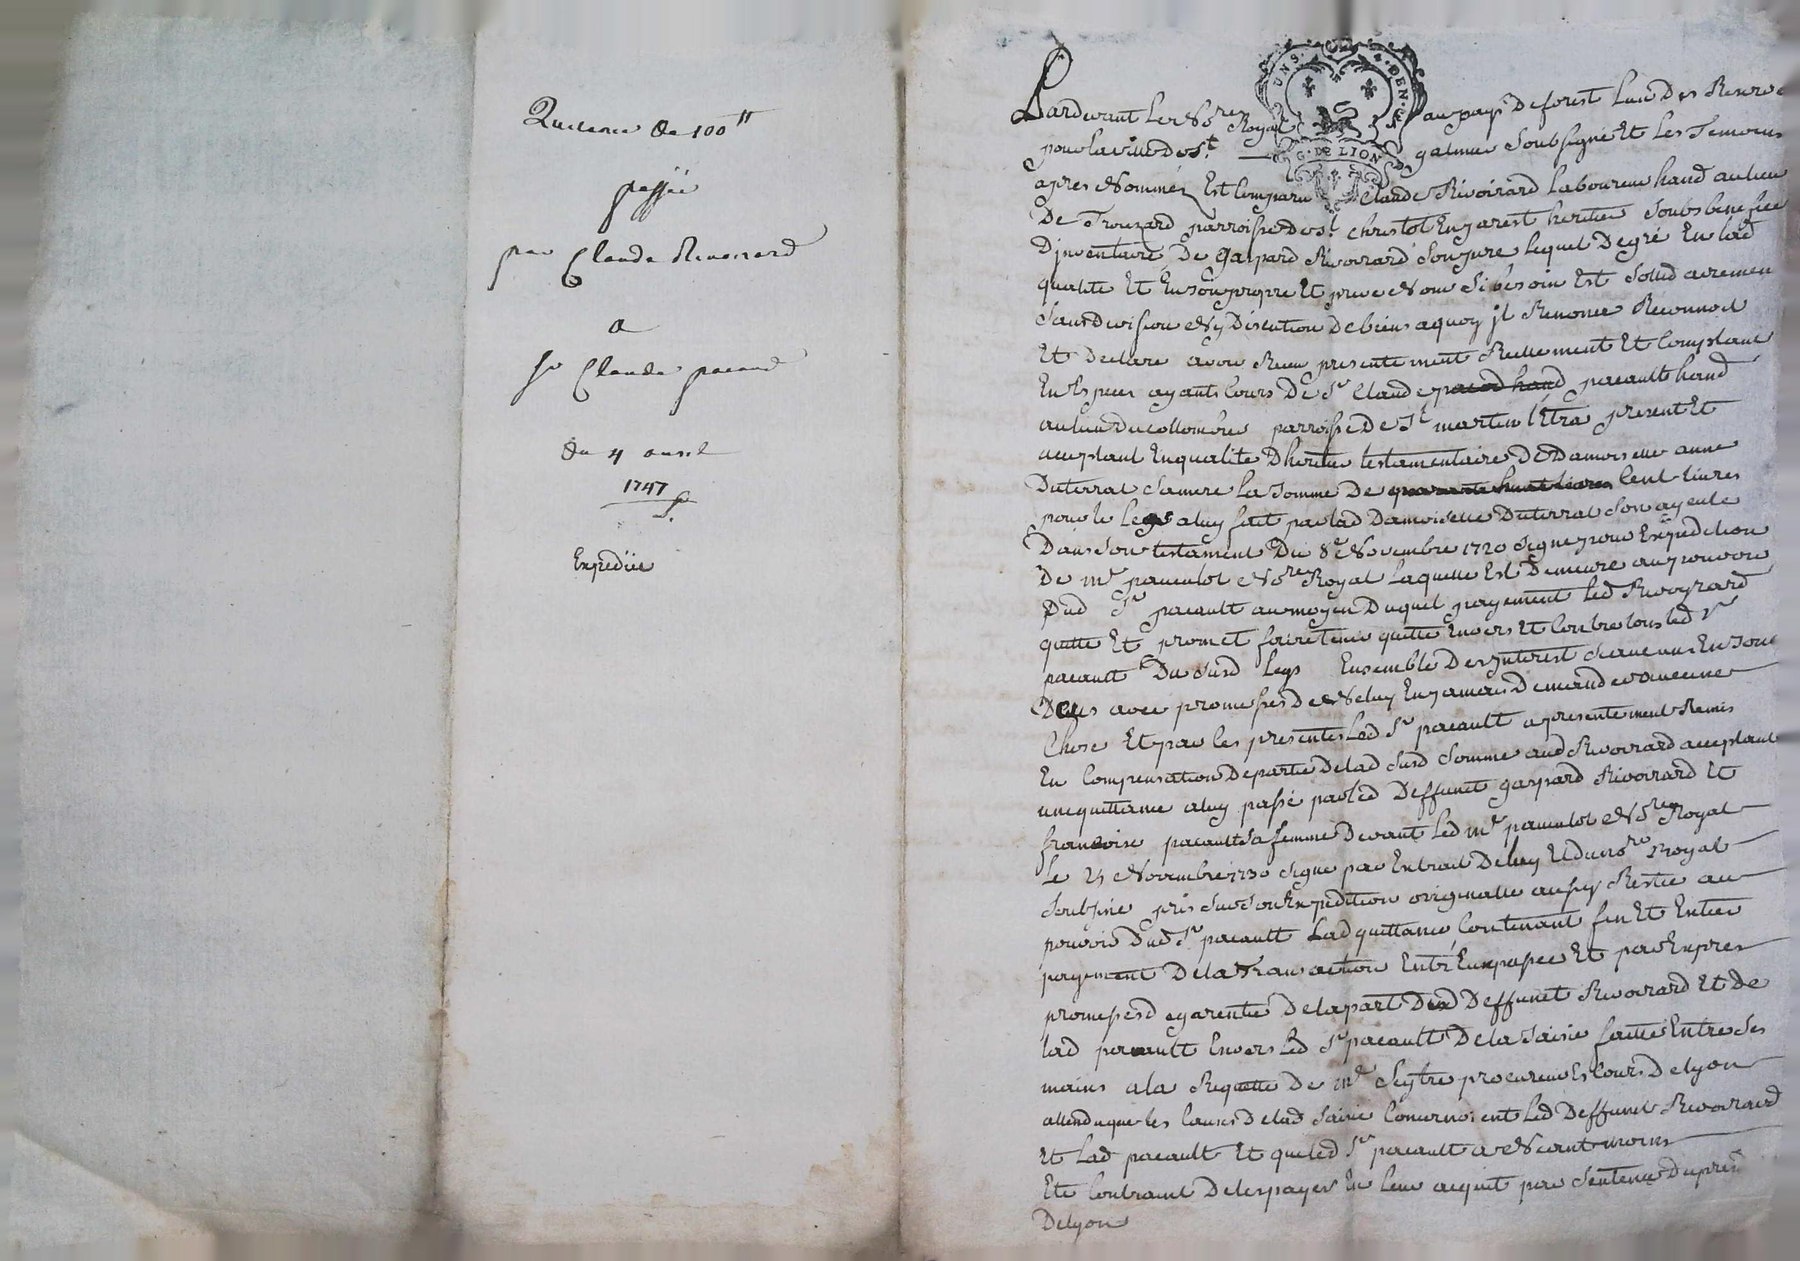 Quittance de 100 ₶
passée
par Claude Rivoirard
a
Sr Claude pacaud
du 4 avril
1747
Expediée
UN S. DEN. 8
G. DE LION
Pardevant le No.re Royal au pays de forest lun des Reserves
pour la ville de St. galmier soubsigné et les Temoins
apres Nommés Est Comparu Claude Rivoirard Laboureur habd au lieu
De Trouzard parroisse de st. christot En jarest heritier soubs benefice
Dinventaire De gaspard Rivoirard son pere lequel De gré En lad
qualité Et En son propre Et privé Nom si besoin Est solidairement
sans Division Ny Discution De biens a quoy jl Renonce Reconnoit
Et Declare avoir Receu presentement Reellement Et Comptant
En Especes ayants Cours De Sr Claude pacod habd pacault habd
au lieu du collombier parroisse De St martin lEtra present Et
acceptant En qualité Dheritier testamentaire De Damoiselle anne
Duterrat sa mere La somme De quarante huit livres Cent livres
pour le Legs a luy fait par lad Damoiselle Duterrat son ayeule
Dans son testament Du 8e Novembre 1720 signé pour Expedition
De me paventot No.re Royal Laquelle Est Demeuré au pouvoir
Dud Sr pacault au moyen Duquel payement Led Rivoyrard
quitte Et promet faire tenir quitte Envers Et Contre tous led Sr
pacault Du susd Legs Ensemble Des Jnterest
avec promesse De Ne luy En jamais Demander aucune
Chose Et par les presentes Led Sr pacault a presentement Remis
En Compensation De partie De lad susd somme aud Rivoirard acceptant
une quittance a luy passé par led Deffunt gaspard Rivoirard Et
francoise pacault sa femme Devant Led me paventot No.re Royal
Le Novembre 1730 signé par Extrait De luy Et du no.re Royal
soubsigné pris sur son Expedition originalle aussy Restée au
pouvoir Dud Sr. pacault Lad quittance Contenant fin Et Entier
payement De la Transaction Entr Eux passée Et par Expres
promesse de garentie De la part Dud Deffunt Rivoirard Et de
lad pacault Envers Led Sr pacault De la saisie faitte Entre ses
mains a la Requette De me Seytre procureur Es Cours De lyon
attendu que les Causes De lad saisie Concernoient Led Deffunt Rivoirard
Et Lad pacault Et que led Sr pacault a Neantmoins
Eté Contraint De les payer En leur acquit par sentence
De lyon